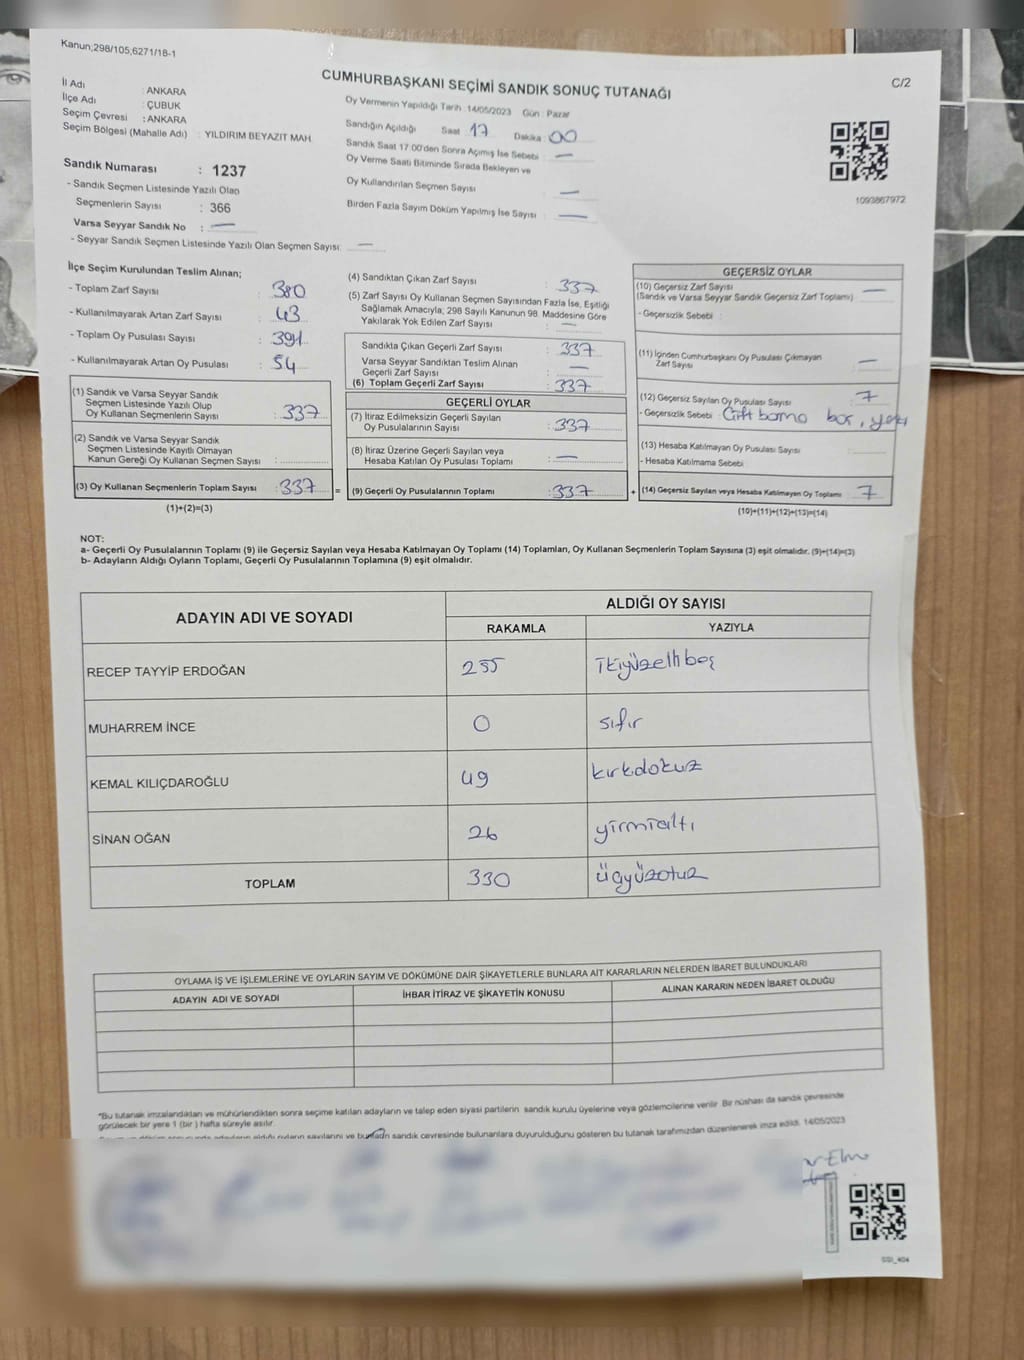 Kanun;298/105;6271/18-1
CUMHURBAŞKANI SEÇİMİ SANDIK SONUÇ TUTANAĞI
C/2
İl Adı : ANKARA
İlçe Adı : ÇUBUK
Seçim Çevresi : ANKARA
Seçim Bölgesi (Mahalle Adı) : YILDIRIM BEYAZIT MAH.
Sandık Numarası : 1237
- Sandık Seçmen Listesinde Yazılı Olan
Seçmenlerin Sayısı : 366
Varsa Seyyar Sandık No : —
- Seyyar Sandık Seçmen Listesinde Yazılı Olan Seçmen Sayısı: —
Oy Vermenin Yapıldığı Tarih 14/05/2023 Gün : Pazar
Sandığın Açıldığı Saat 17 Dakika : 00
Sandık Saat 17:00'den Sonra Açımış İse Sebebi : —
Oy Verme Saati Bitiminde Sırada Bekleyen ve
Oy Kullandırılan Seçmen Sayısı : —
Birden Fazla Sayım Döküm Yapılmış İse Sayısı : —
1093867972
İlçe Seçim Kurulundan Teslim Alınan;
- Toplam Zarf Sayısı : 380
- Kullanılmayarak Artan Zarf Sayısı : 43
- Toplam Oy Pusulası Sayısı : 391
- Kullanılmayarak Artan Oy Pusulası : 54
(1) Sandık ve Varsa Seyyar Sandık
Seçmen Listesinde Yazılı Olup
Oy Kullanan Seçmenlerin Sayısı : 337
(2) Sandık ve Varsa Seyyar Sandık
Seçmen Listesinde Kayıtlı Olmayan
Kanun Gereği Oy Kullanan Seçmen Sayısı :
(3) Oy Kullanan Seçmenlerin Toplam Sayısı : 337 =
(1)+(2)=(3)
(4) Sandıktan Çıkan Zarf Sayısı : 337
(5) Zarf Sayısı Oy Kullanan Seçmen Sayısından Fazla İse, Eşitliği
Sağlamak Amacıyla, 298 Sayılı Kanunun 98. Maddesine Göre
Yakılarak Yok Edilen Zarf Sayısı : —
Sandıkla Çıkan Geçerli Zarf Sayısı : 337
Varsa Seyyar Sandıktan Teslim Alınan
Geçerli Zarf Sayısı : —
(6) Toplam Geçerli Zarf Sayısı : 337
GEÇERLİ OYLAR
(7) İtiraz Edilmeksizin Geçerli Sayılan
Oy Pusulalarının Sayısı : 337
(8) İtiraz Üzerine Geçerli Sayılan veya
Hesaba Katılan Oy Pusulası Toplamı : —
(9) Geçerli Oy Pusulalarının Toplamı : 337 +
GEÇERSİZ OYLAR
(10) Geçersiz Zarf Sayısı : —
(Sandık ve Varsa Seyyar Sandık Geçersiz Zarf Toplamı)
- Geçersizlik Sebebi :
(11) İçinden Cumhurbaşkanı Oy Pusulası Çıkmayan
Zarf Sayısı : —
(12) Geçersiz Sayılan Oy Pusulası Sayısı : 7
- Geçersizlik Sebebi :
(13) Hesaba Katılmayan Oy Pusulası Sayısı :
- Hesaba Katılmama Sebebi
(14) Geçersiz Sayılan veya Hesaba Katılmayan Oy Toplamı : 7
(10)+(11)+(12)+(13)=(14)
NOT:
a- Geçerli Oy Pusulalarının Toplamı (9) ile Geçersiz Sayılan veya Hesaba Katılmayan Oy Toplamı (14) Toplamları, Oy Kullanan Seçmenlerin Toplam Sayısına (3) eşit olmalıdır. (9)+(14)=(3)
b- Adayların Aldığı Oyların Toplamı, Geçerli Oy Pusulalarının Toplamına (9) eşit olmalıdır.
ADAYIN ADI VE SOYADI
ALDIĞI OY SAYISI
RAKAMLA YAZIYLA
RECEP TAYYİP ERDOĞAN 255 ikiyüzellibeş
MUHARREM İNCE 0 sıfır
KEMAL KILIÇDAROĞLU 49 kırkdokuz
SİNAN OĞAN 26 yirmialtı
TOPLAM 330 üçyüzotuz
OYLAMA İŞ VE İŞLEMLERİNE VE OYLARIN SAYIM VE DÖKÜMÜNE DAİR ŞİKAYETLERLE BUNLARA AİT KARARLARIN NELERDEN İBARET BULUNDUKLARI
ADAYIN ADI VE SOYADI İHBAR İTİRAZ VE ŞİKAYETİN KONUSU ALINAN KARARIN NEDEN İBARET OLDUĞU
*Bu tutanak imzalandıktan ve mühürlendikten sonra seçime katılan adayların ve talep eden siyasi partilerin sandık kurulu üyelerine veya gözlemcilerine verilir. Bir nüshası da sandık çevresinde
görülecek bir yere 1 (bir) hafta süreyle asılır.
adayların aldığı oyların sayılarını ve bunların sandık çevresinde bulunanlara duyurulduğunu gösteren bu tutanak tarafımızdan düzenlenerek imza edildi. 14/05/2023